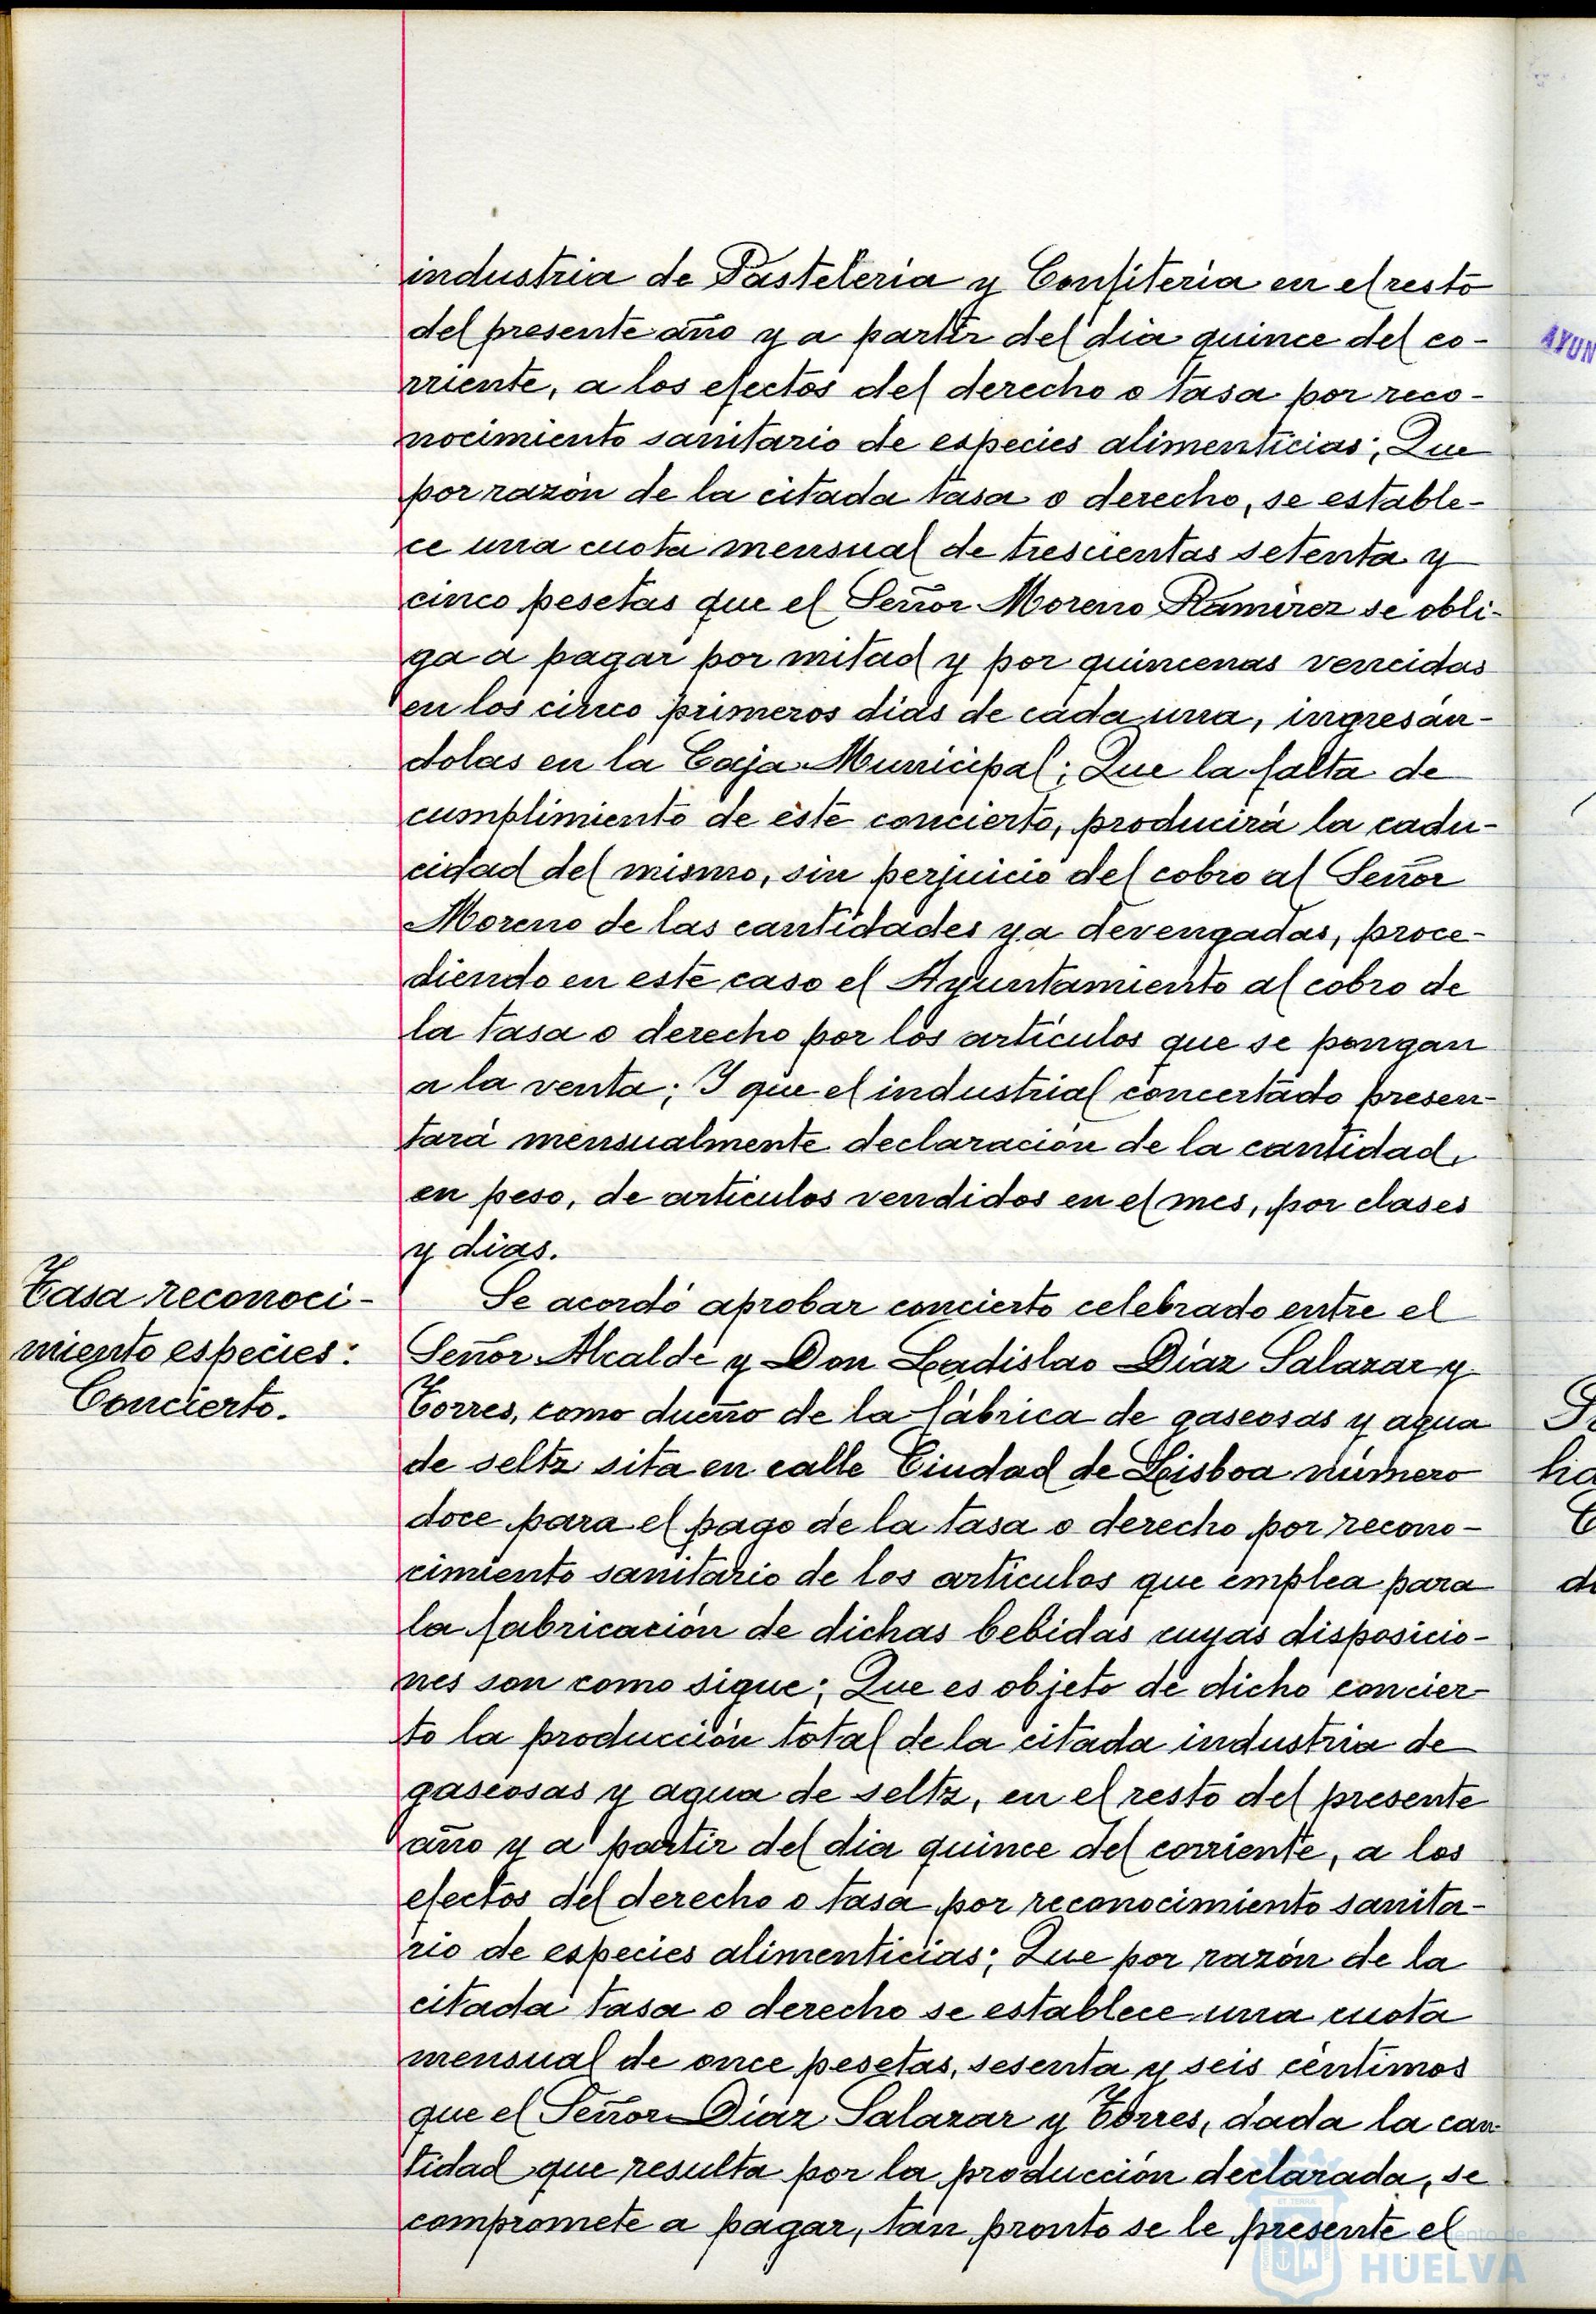 industria de Pasteleria y Confiteria en el resto
del presente año y a partir del dia quince del co-
rriente, a los efectos del derecho o tasa por reco-
nocimiento sanitario de especies alimenticias; Que
por razón de la citada tasa o derecho, se estable-
ce una cuota mensual de trescientas setenta y
cinco pesetas que el Señor Moreno Ramirez se obli-
ga a pagar por mitad y por quincenas vencidas
en los cinco primeros dias de cada una, ingresán-
dolas en la Caja Municipal; Que la falta de
cumplimiento de éste concierto, producirá la cadu-
cidad del mismo, sin perjuicio del cobro al Señor
Moreno de las cantidades ya devengadas, proce-
diendo en este caso el Ayuntamiento al cobro de
la tasa o derecho por los articulos que se pongan
a la venta; Y que el industrial concertado presen-
tará mensualmente declaración de la cantidad,
en peso, de articulos vendidos en el mes, por clases
y dias.
Tasa reconoci-
miento especies:
Concierto.
Se acordó aprobar concierto celebrado entre el
Señor Alcalde y Don Ladislao Diaz Salazar y
Torres, como dueño de la fábrica de gaseosas y agua
de seltz sita en calle Ciudad de Lisboa número
doce para el pago de la tasa o derecho por recono-
cimiento sanitario de los articulos que emplea para
la fabricación de dichas bebidas cuyas disposicio-
nes son como sigue: Que es objeto de dicho concier-
to la producción total de la citada industria de
gaseosas y agua de seltz, en el resto del presente
año y a partir del dia quince del corriente, a los
efectos del derecho o tasa por reconocimiento sanita-
rio de especies alimenticias; Que por razón de la
citada tasa o derecho se establece una cuota
mensual de once pesetas, sesenta y seis céntimos
que el Señor Diaz Salazar y Torres, dada la can-
tidad que resulta por la producción declarada, se
compromete a pagar, tan pronto se le presente el
AYUN
HUELVA